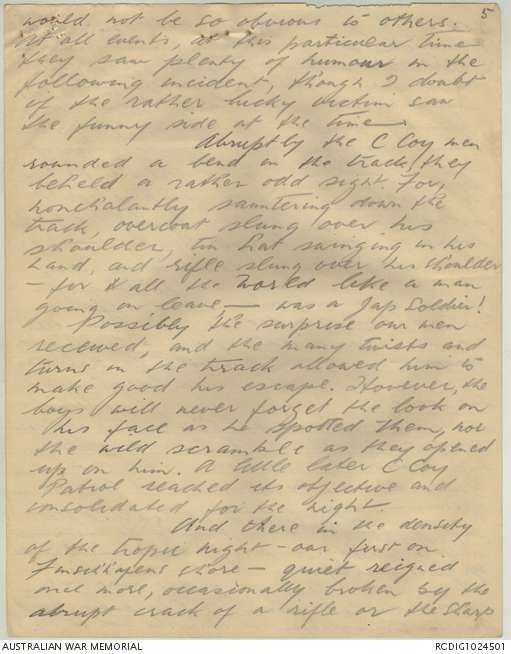 5
would not be so obvious to others.
At all events, at this particular time
they saw plenty of humour in the
following incident, though I doubt
if the rather lucky victim saw
the funny side at the time.
Abruptly the C Coy men
rounded a bend in the track, they
beheld a rather odd sight. For,
nonchalantly sauntering down the
track, overcoat slung over his
shoulder, tin hat swinging in his
hand, and rifle slung over his shoulder
- for all the world like a man
going on leave, — was a Jap Soldier!
Possibly the surprise our men
received, and the many twists and
turns in the track allowed him to
make good his escape. However, the
boys will never forget the look on
his face as he spotted them, nor
the wild scramble as they opened
up on him. A little later C Coy
Patrol reached its objective and
consolidated for the night.
And there in the density
of the tropic night - our first on
Finschhafens shore - quiet reigned
once more, occasionally broken by the
abrupt crack of a rifle or the sharp
AUSTRALIAN WAR MEMORIAL
RCDIG1024501